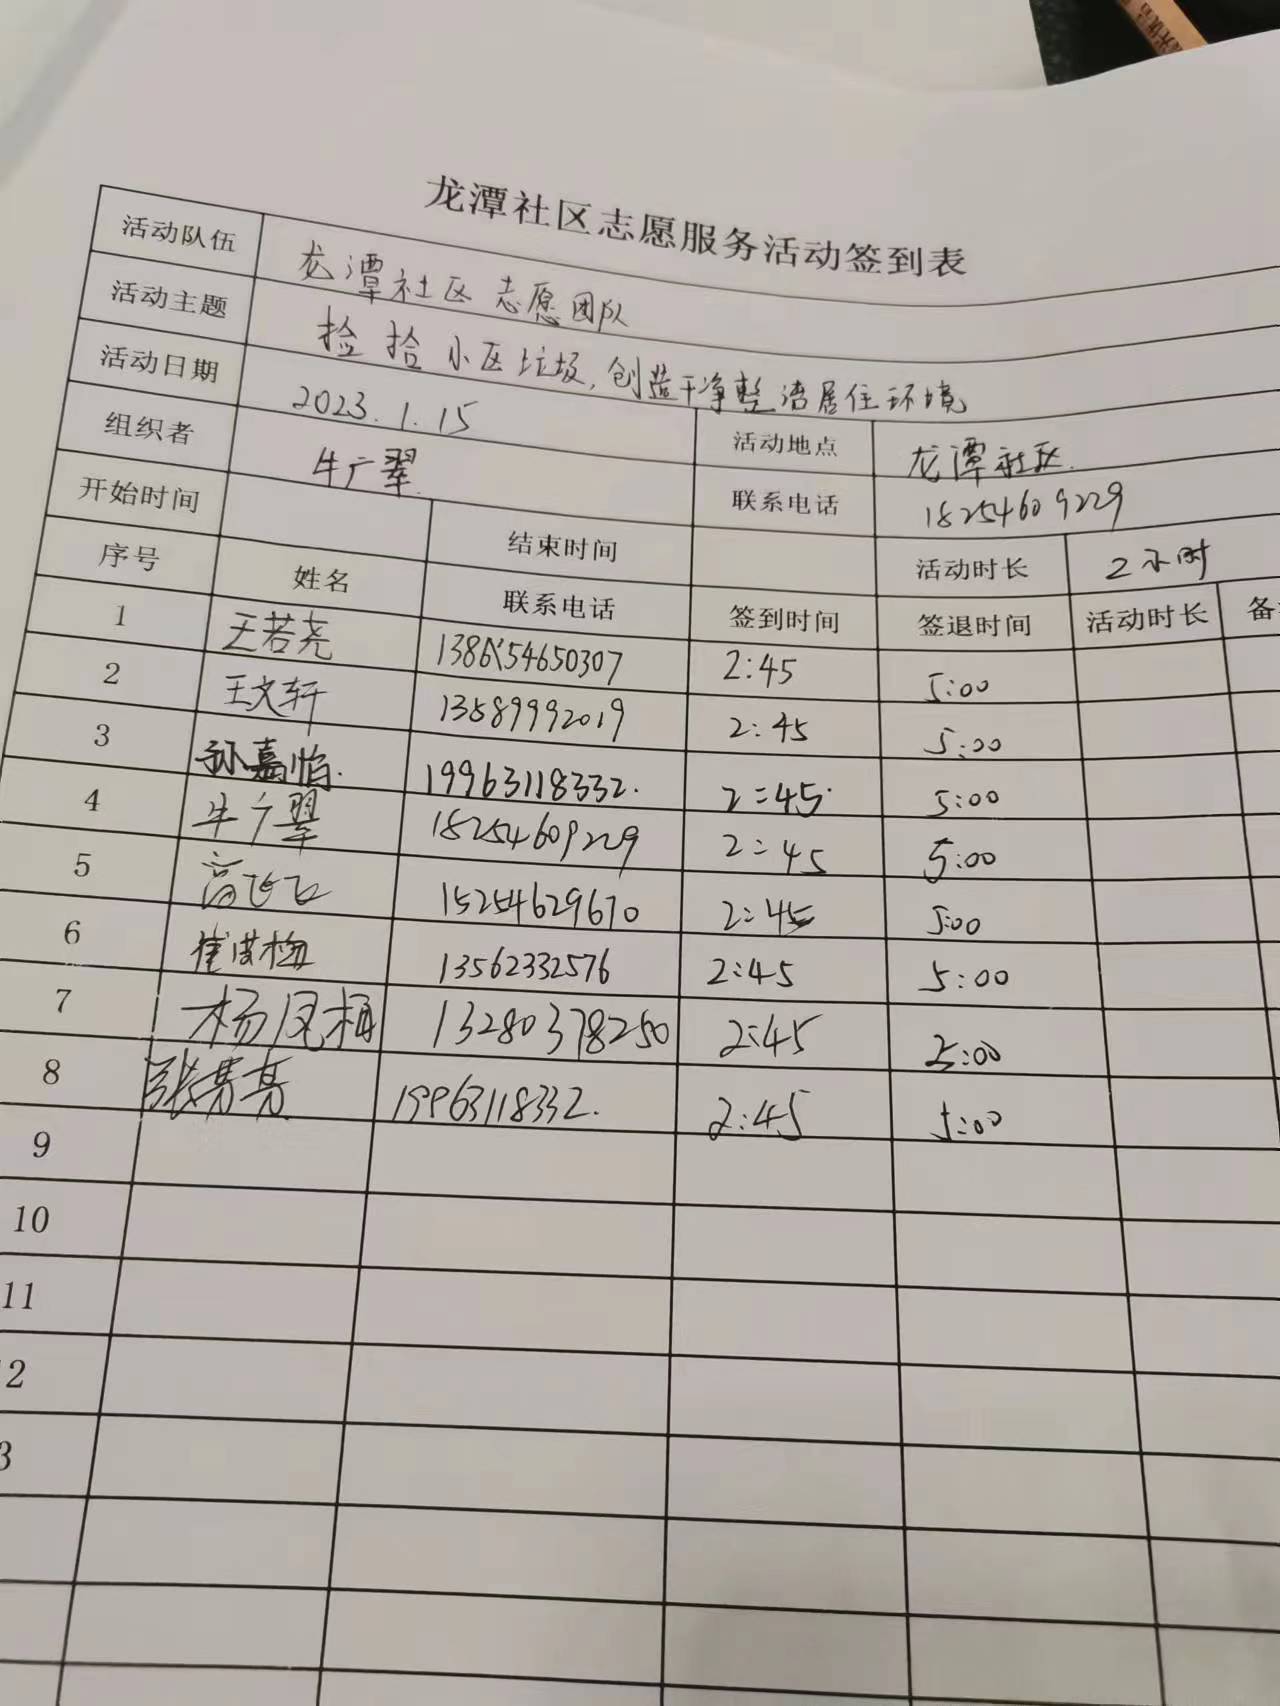 龙潭社区志愿服务活动签到表
活动队伍 龙潭社区志愿团队
活动主题 捡拾小区垃圾，创造干净整洁居住环境
活动日期 2023.1.15 活动地点 龙潭社区
组织者 牛广翠 联系电话 18254609229
开始时间 结束时间 活动时长 2小时
序号 姓名 联系电话 签到时间 签退时间 活动时长 备
1 王若尧 2:45 5:00
2 王文轩 13589992019 2:45 5:00
3 孙嘉怡 19963118332 2:45 5:00
4 牛广翠 18254609229 2:45 5:00
5 高飞飞 15254629670 2:45 5:00
6 13562332576 2:45 5:00
7 杨凤梅 13280378250 2:45 5:00
8 19963118332 2:45 5:00
9
10
11
2
3